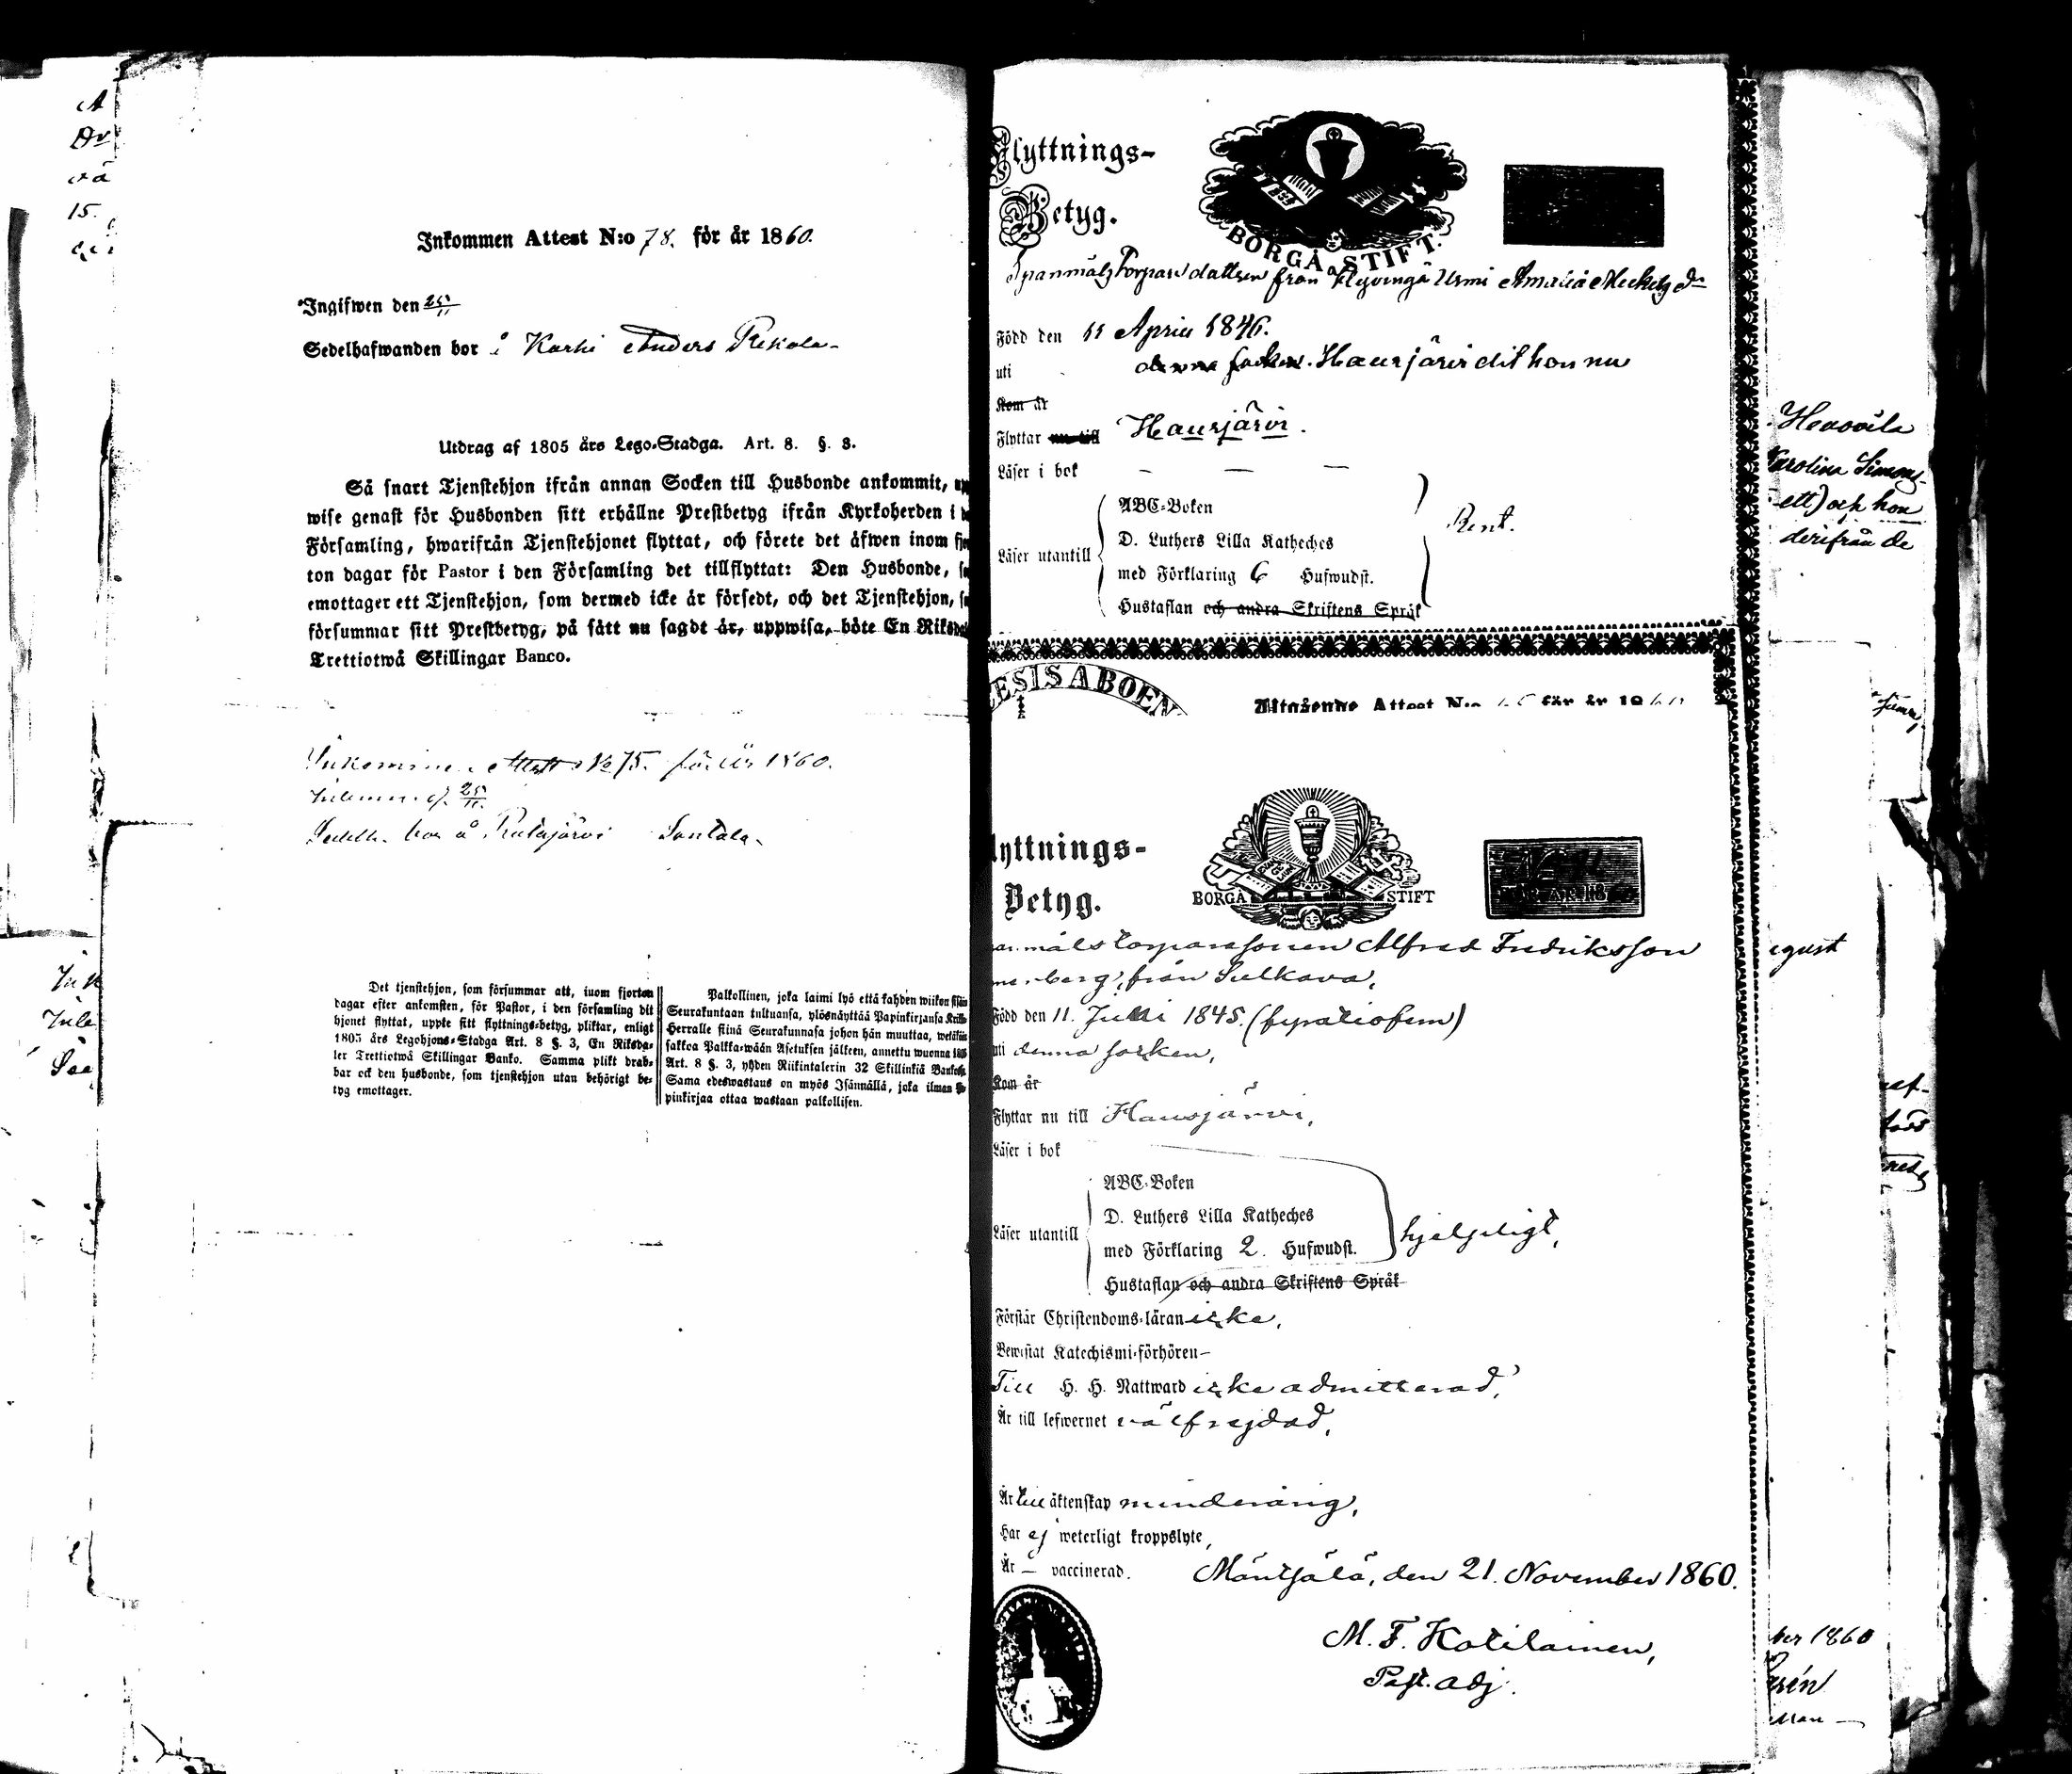 Inkommen Attest N:o 78. för år 1860.
Ingifwen den 25/11
Sedelhafwanden bor i Karhi Anders Pekola
Utdrag af 1805 års Lego-Stadga. Art. 8. §. 3.
Så snart Tjenstehjon ifrån annan Socken till Husbonde ankommit,
wise genast för Husbonden sitt erhållne Prestbetyg ifrån Kyrkoherden i
Församling, hwarifrån Tjenstehjonet flyttat, och förete det äfwen inom
ton dagar för Pastor i den Församling det tillflyttat: Den Husbonde,
emottager ett Tjenstehjon, som dermed icke är försedt, och det Tjenstehjon,
försummar sitt Prestbetyg, på sätt nu sagdt är, uppwisa, böte En
Trettiotwå Skillingar Banco.
Inkommen Attest No 75. för år 1860.
25/11.
Sedelh. bor å Ratasjärvi Santala
Det tjenstehjon, som försummar att, inom fjorton
dagar efter ankomsten, för Pastor, i den församling dit
hjonet flyttat, uppte sitt flyttnings-betyg, pliktar, enligt
1805 års Legohjons-Stadga Art. 8 §. 3, En Riksda-
ler Trettiotwå Skillingar Banko. Samma plikt drab-
bar ock den husbonde, som tjenstehjon utan behörigt be-
tyg emottager.
Palkollinen, joka laimi lyö että kahden wiikon sisään
Seurakuntaan tultuansa, ylösnäyttää Papinkirjansa
Herralle siinä Seurakunnasa johon hän muuttaa, wetäköön
sakkoa Palkka-wään Asetuksen jälkeen, annettu wuonna 1805
Art. 8 §. 3, yhden Riikintalerin 32 Skillinkiä
Sama edeswastaus on myös Isännällä, joka ilman
pinkirjaa ottaa wastaan palkollisen.
Flyttnings-
Betyg.
BORGÅ STIFT.
Spanmåls Torpare dottren från Hyvingä Urmi Amalia Michelsdr
Född den 11 April 1846.
uti denna socken. Hausjärvi dit hon nu
Kom år
Flyttar nu till Hausjärvi.
Läser i bok — — —
Läser utantill
ABC-Boken
D. Luthers Lilla Katheches
med Förklaring 6 Hufwudst.
Hustaflan och andra Skriftens Språk
Rent.
ESIS ABOEN
Utgående Attest N:o för år 1860
Flyttnings-
Betyg.
BORGÅ STIFT
målstorparesonen Alfred Fredriksson
berg, från Sulkava,
Född den 11. Juli 1845. (fyratiofem)
uti denna socken,
Kom år
Flyttar nu till Hausjärvi,
Läser i bok
Läser utantill
ABC-Boken
D. Luthers Lilla Katheches
med Förklaring 2. Hufwudst.
Hustaflan och andra Skriftens Språk
hjelpligt,
Förstår Christendoms-läran icke,
Bewistat Katechismi-förhören —
Till H. H. Nattward icke admitterad,
Är till lefwernet välfrejdad,
Är till äktenskap minderårig,
Har ej weterligt kroppslyte,
Är — vaccinerad.
Mäntsälä, den 21. November 1860.
M. F. Kotilainen,
Past. adj.
Karolina Simons-
ett) och hon
derifrån de
gust
ber 1860